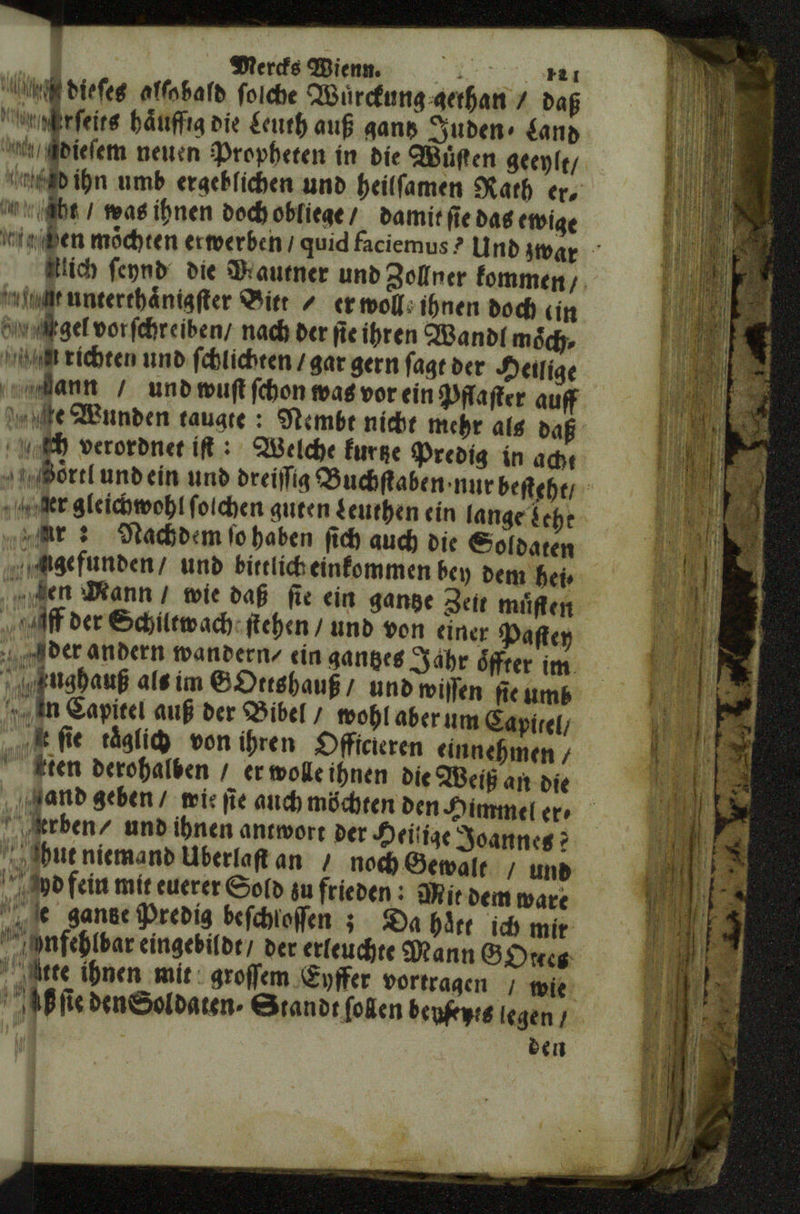 Mercks Wienn. 121
dieses alsobald solche Würckung gethan / daß
häuffig die Leuth auß gantz Juden- Land
diesem neuen Propheten in die Wüsten geeylt/
ihn umb ergeblichen und heilsamen Rath er-
/ was ihnen doch obliege / damit sie das ewige
möchten erwerben / quid faciemus? Und zwar
seynd die Mautner und Zollner kommen /
unterthänigster Bitt / er woll ihnen doch ein
vorschreiben/ nach der sie ihren Wandl möch-
richten und schlichten / gar gern sagt der Heilige
/ und wust schon was vor ein Pflaster auff
Wunden taugte : Nembt nicht mehr als daß
verordnet ist : Welche kurtze Predig in acht
und ein und dreissig Buchstaben nur bestehet/
gleichwohl solchen guten Leuthen ein lange Lehr
: Nachdem so haben sich auch die Soldaten
/ und bittlich einkommen bey dem hei-
Mann / wie daß sie ein gantze Zeit müsten
der Schiltwach stehen / und von einer Pastey
der andern wandern/ ein gantzes Jahr öffter im
als im GOttshauß / und wissen sie umb
Capitel auß der Bibel / wohl aber um Capitel/
sie täglich von ihren Officieren einnehmen /
derohalben / er wolle ihnen die Weiß an die
geben / wie sie auch möchten den Himmel er-
/ und ihnen antwort der Heilige Joannes ?
niemand Uberlast an / noch Gewalt / und
fein mit euerer Sold zu frieden : Mit dem ware
gantze Predig beschlossen ; Da hätt ich mir
eingebildt / der erleuchte Mann GOttes
ihnen mit grossem Eyffer vortragen / wie
sie den Soldaten- Standt sollen beyseyts legen /
den